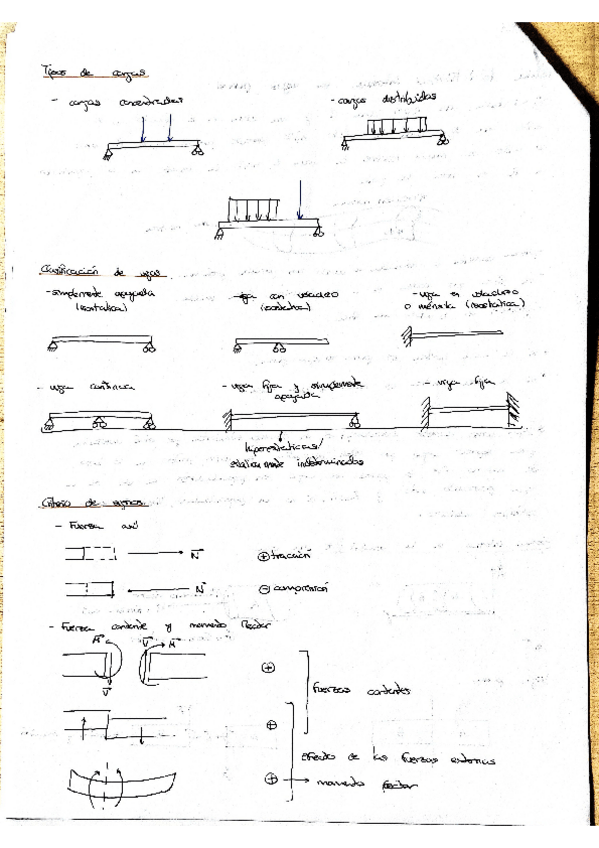 Tipos de cargas
- cargas concentradas
- cargas distribuidas
Clasificación de vigas
- simplemente apoyada
(isostatica)
- viga con voladizo
(isostatica)
- viga en voladizo
o ménsula (isostatica)
- viga continua
- viga fija y simplemente
apoyada
- viga fija
hiperestaticas/
estaticamente indeterminadas
Criterio de signos
- Fuerza axil
N
+ tracción
N
- compresión
- Fuerza cortante y momento flector
M
V
M
V
+
Fuerzas cortantes
+
Efecto de las fuerzas externas
+ → momento flector